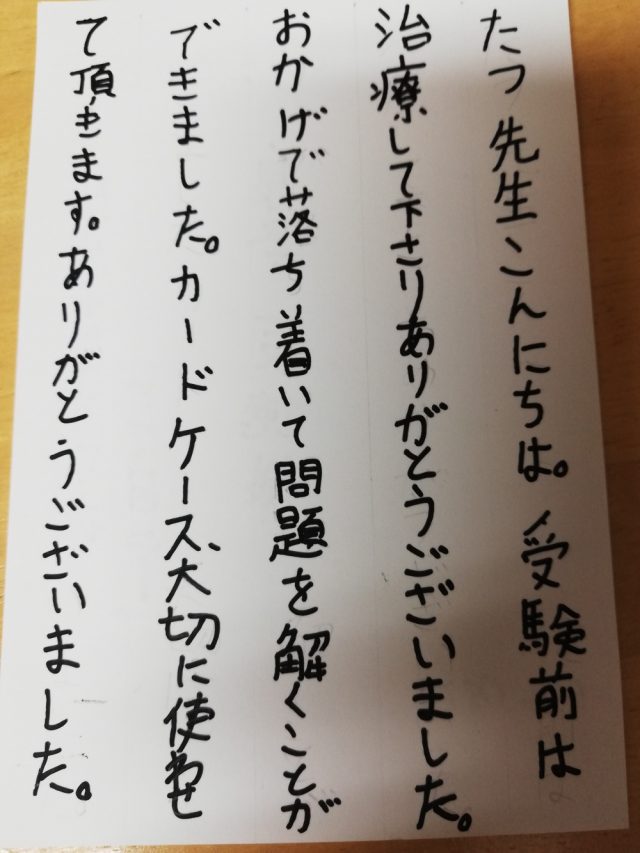 たつ先生こんにちは。受験前は
治療して下さりありがとうございました。
おかげで落ち着いて問題を解くことが
できました。カードケース、大切に使わせ
て頂きます。ありがとうございました。